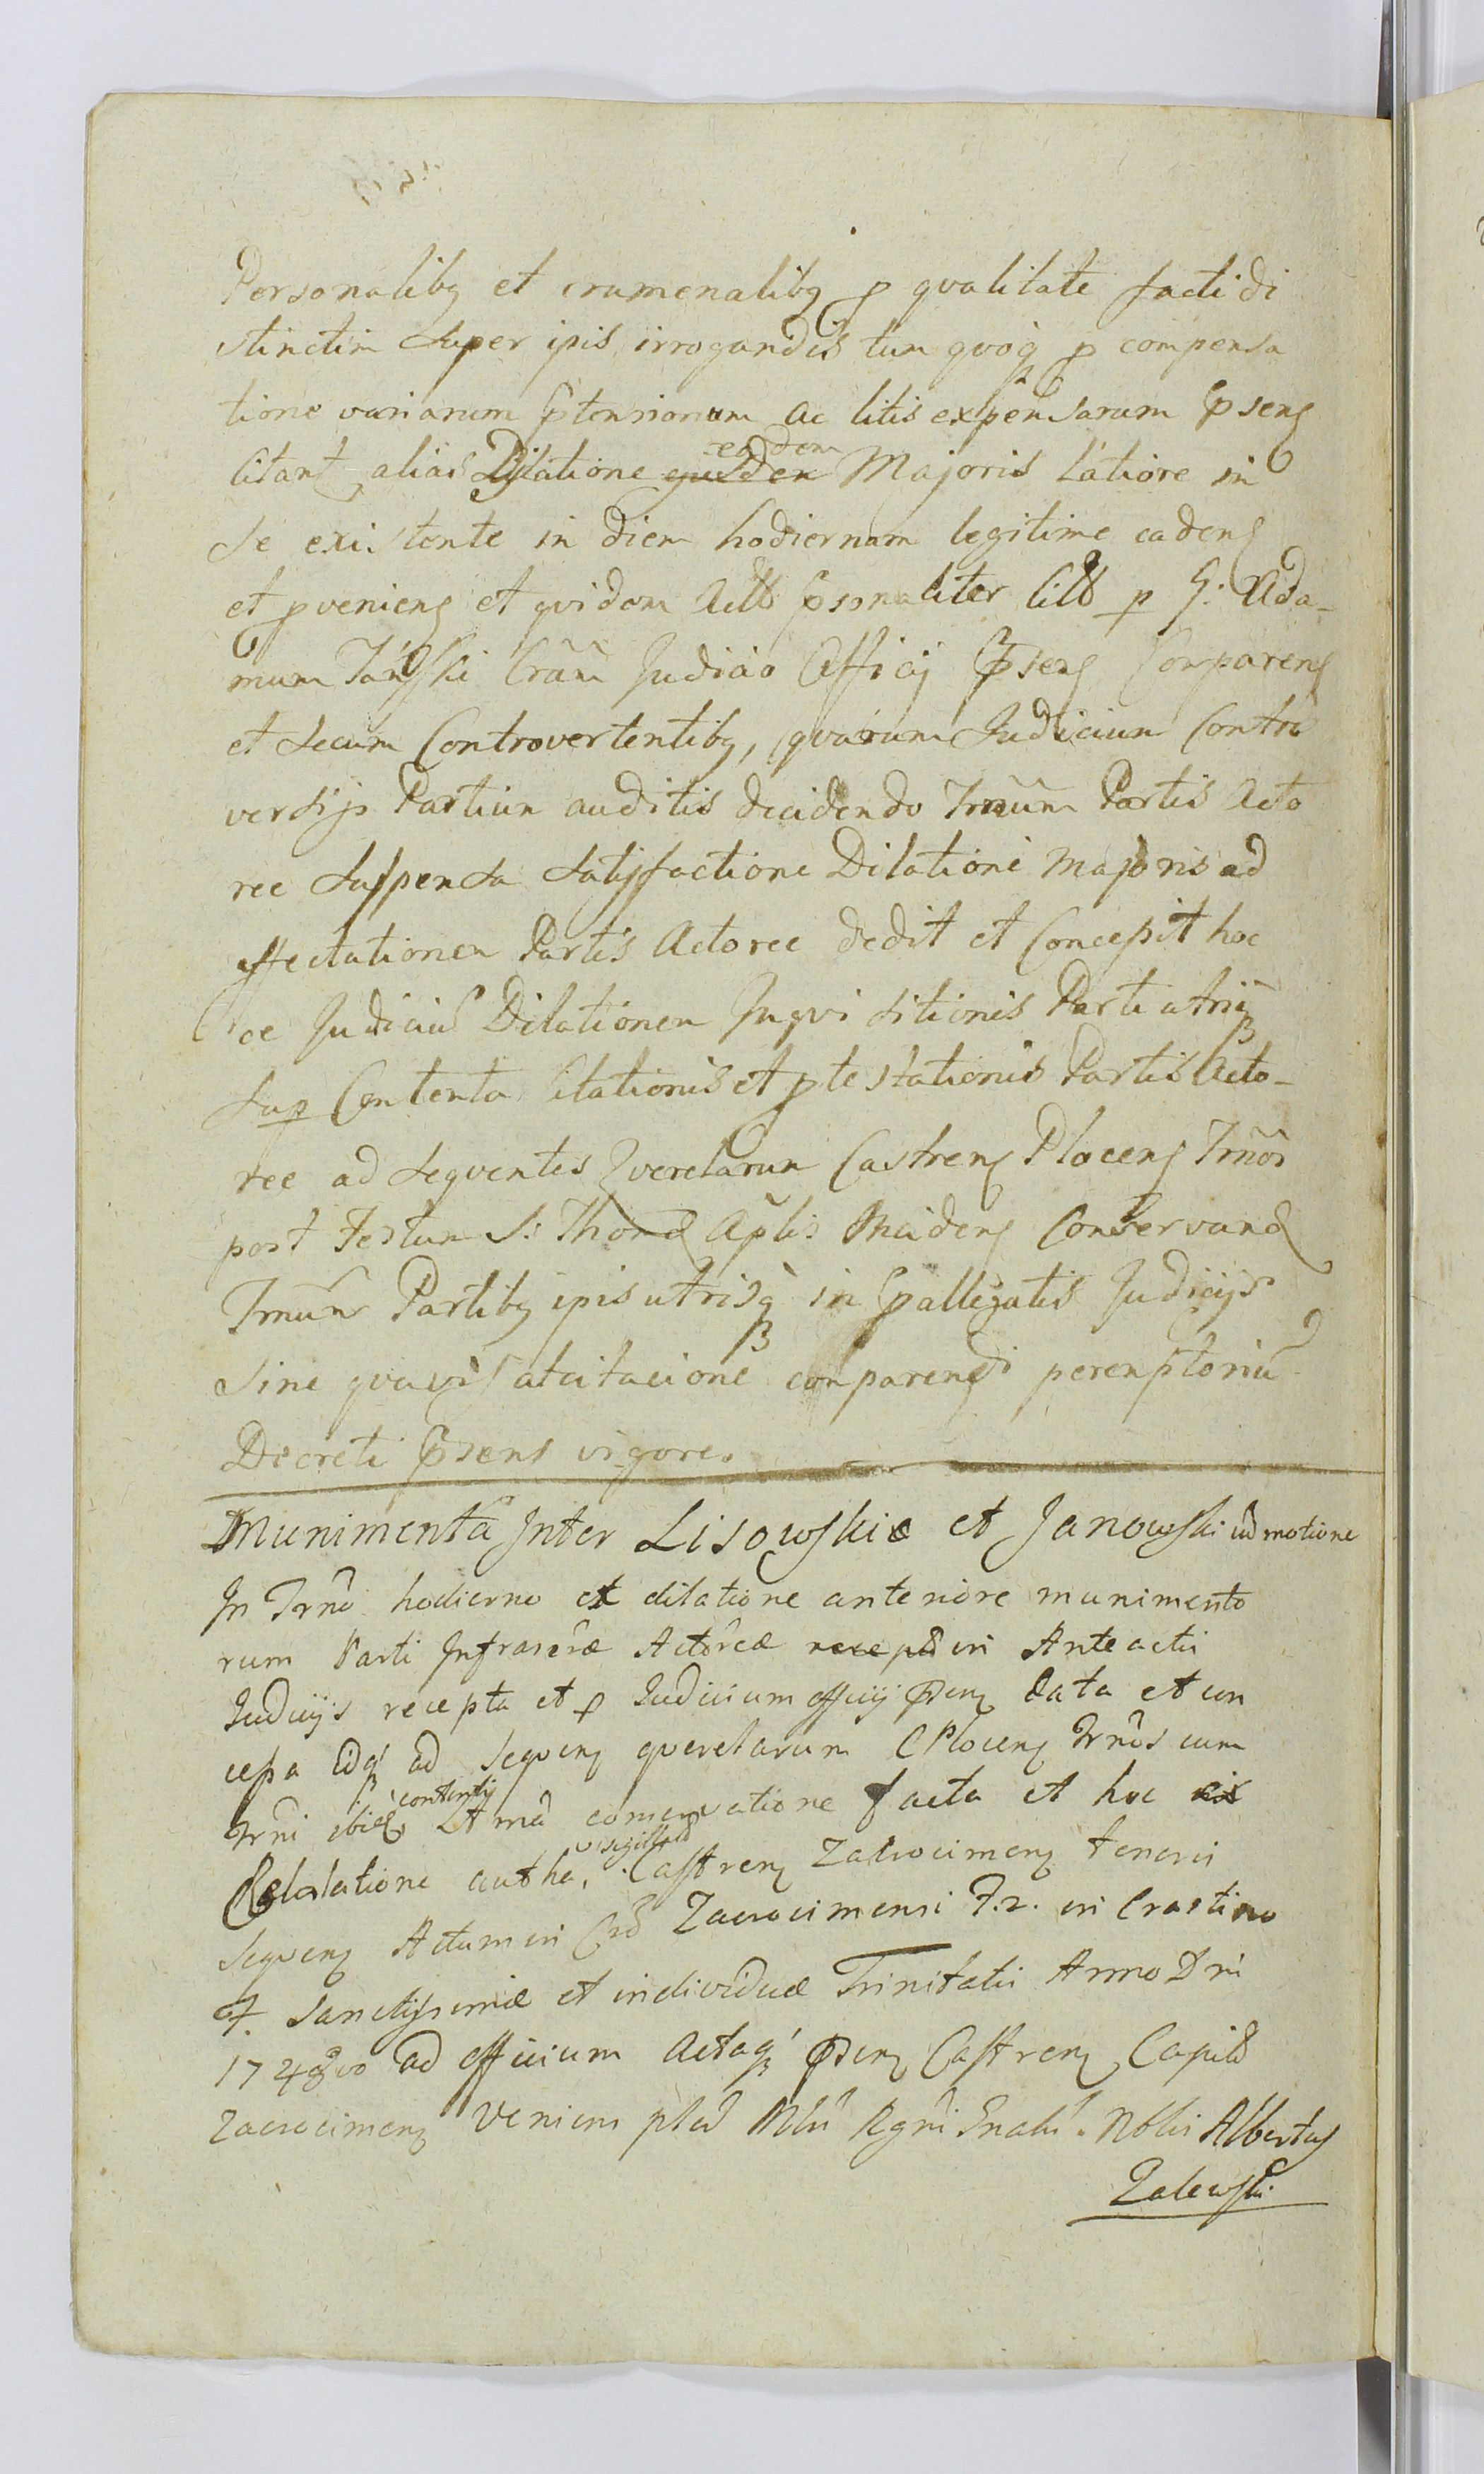 Personalibq et crumenalibq p qvalitate facti di
stinctim super ipis irrogandis tum qvoq p compensa
tione variarum Ptensionum ac litis expensarum Psens
citant alias Dilatione eadem Majoris latiore in
se existente in diem hodiernam legitime cadens
et pveniens et qvidem Actό Psonaliter Citό p G: Ada-
mum Judicio Officij Psens Comparens
et secum Controvertentibq, qvarum Judicium Contro
versijs Partium auditis decidendo Trnum Partis Acto
ree suspensa satisfactione Dilatione Majoris ad
affectationem Partis Actoree dedit et Concepit hoc
ce Judiciu Dilationem Inqvisitionis Parti utriq
sup Contenta Citationis et ptestationis Partis Acto-
ree ad seqventes Qverelarum Castrens Plocens Trnos
post Festum S: Thomæ Aplis incidens Conservand
Trnum Partibq ipis utrisq in Pallegatis Judicijs
sine qvavis adcitacione comparendi peremptoriu
Decreti Psens vigore.
Munimenta Inter Lisowskie et Janowski admotione
In Trno hodierno ex dilatione anteriore munimento
rum Parti Infrascræ Actoreæ in Anteactis
Judicijs recepta et p Judicium officij Psens data et con
cepta Eidq ad seqvens qverelarum C Plocens Trnos cum
Trni ibidem contentij conservatione facta et hoc ex
Relatione autha, sigillata Castrens Zakrocimens tenoris
seqvens Actum in Cro Zacrocimensi F. 2. in Crastino
F. Sanctissimæ et individuæ Trinitatis Anno Dni
1748vo ad officium Actaq Psens Castrens Capit
Zacrocimens veniens Rgni Gnalis. Nblis Albertus
Zalewski